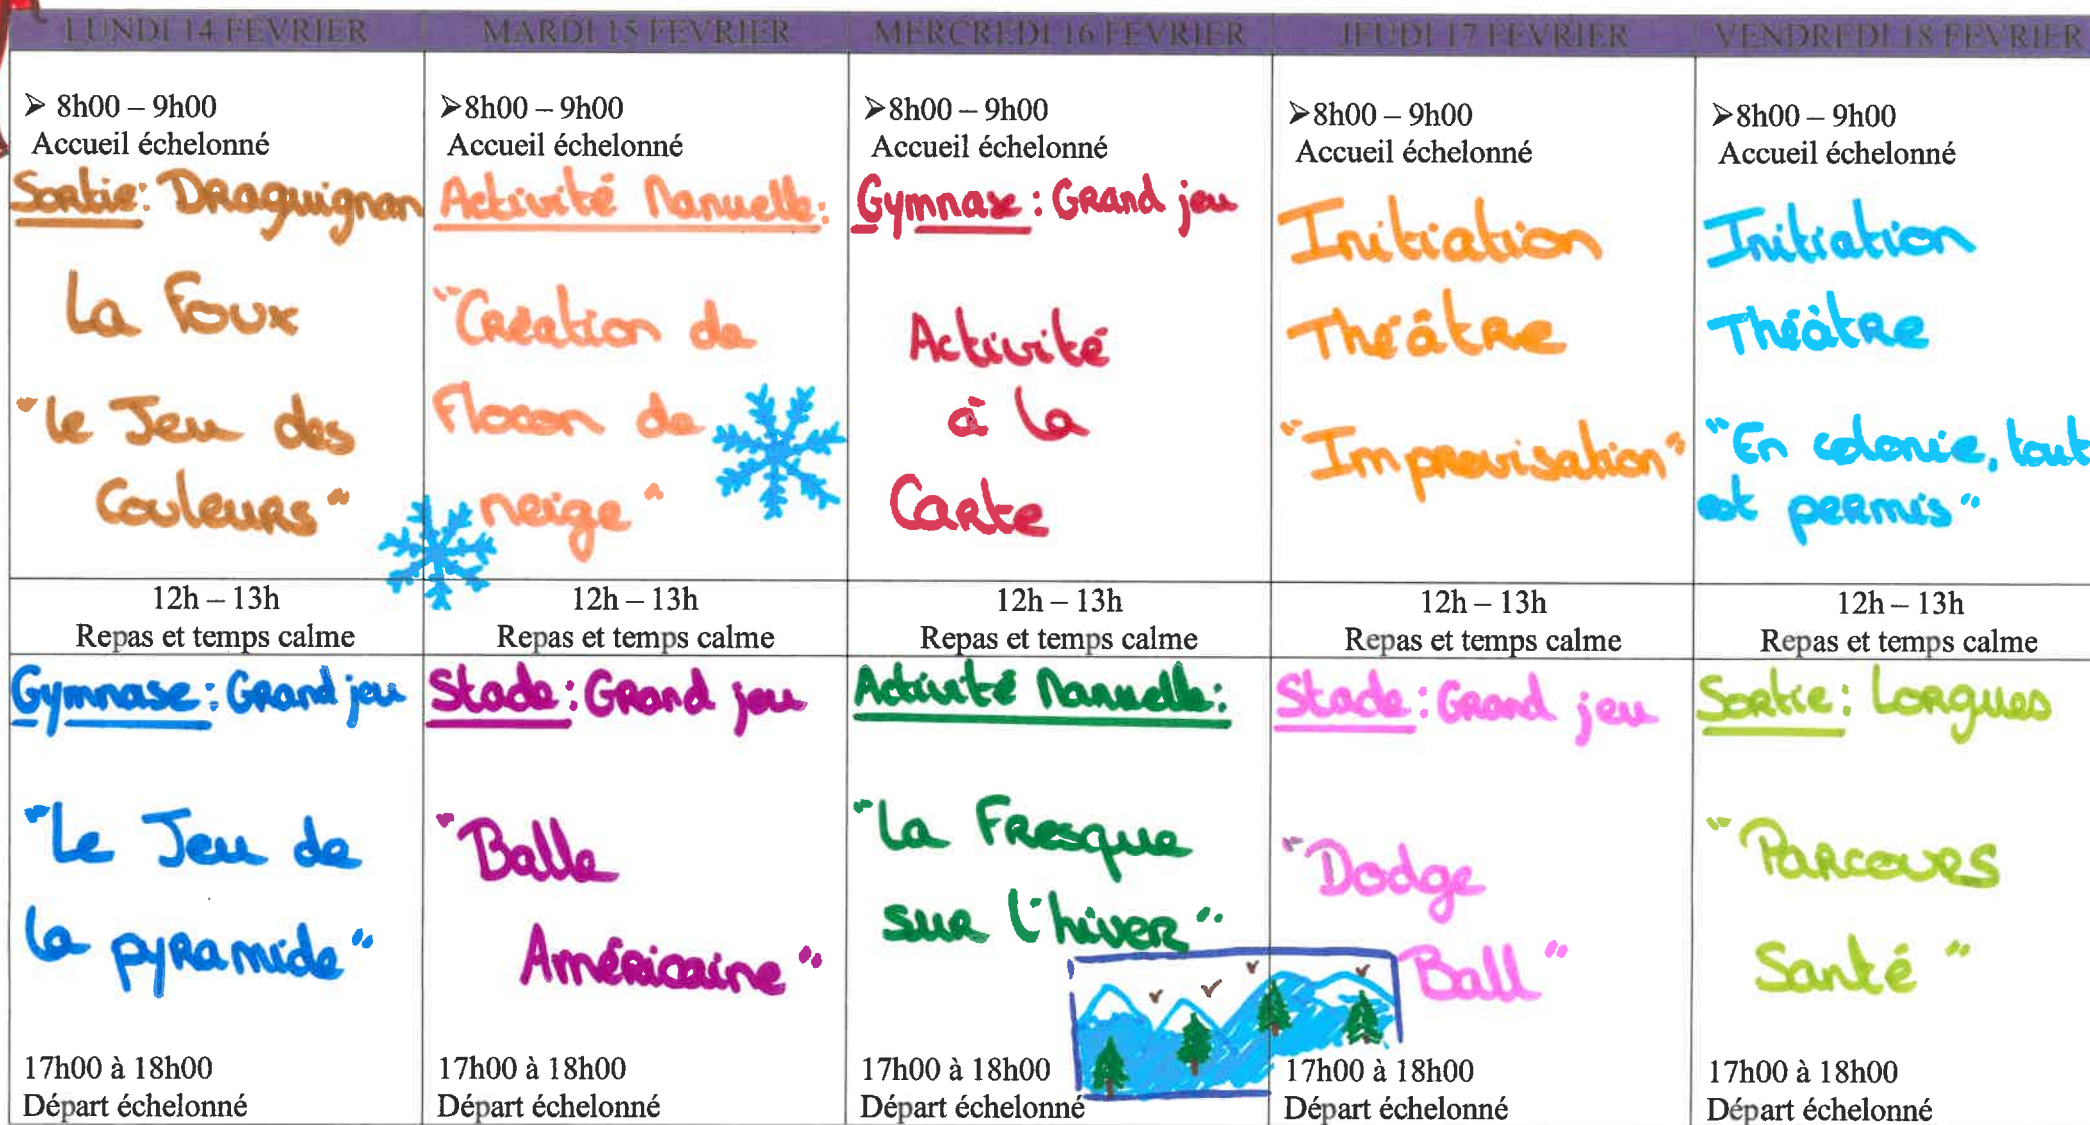 LUNDI 14 FEVRIER
MARDI 15 FEVRIER
MERCREDI 16 FEVRIER
JEUDI 17 FEVRIER
VENDREDI 18 FEVRIER
➢ 8h00 – 9h00
Accueil échelonné
Sortie: Draguignan
La Foux
"Le Jeu des
Couleurs"
➢8h00 – 9h00
Accueil échelonné
Activité Manuelle:
"Création de
Flocon de
neige"
➢8h00 – 9h00
Accueil échelonné
Gymnase: Grand jeu
Activité
à la
Carte
➢8h00 – 9h00
Accueil échelonné
Initiation
Théâtre
"Improvisation"
➢8h00 – 9h00
Accueil échelonné
Initiation
Théâtre
"En colonie, tout
est permis"
12h – 13h
Repas et temps calme
12h – 13h
Repas et temps calme
12h – 13h
Repas et temps calme
12h – 13h
Repas et temps calme
12h – 13h
Repas et temps calme
Gymnase: Grand jeu
"Le Jeu de
la pyramide"
17h00 à 18h00
Départ échelonné
Stade: Grand jeu
"Balle
Américaine"
17h00 à 18h00
Départ échelonné
Activité Manuelle:
"La Fresque
sur l'hiver"
17h00 à 18h00
Départ échelonné
Stade: Grand jeu
"Dodge
Ball"
17h00 à 18h00
Départ échelonné
Sortie: Lorgues
"Parcours
Santé"
17h00 à 18h00
Départ échelonné